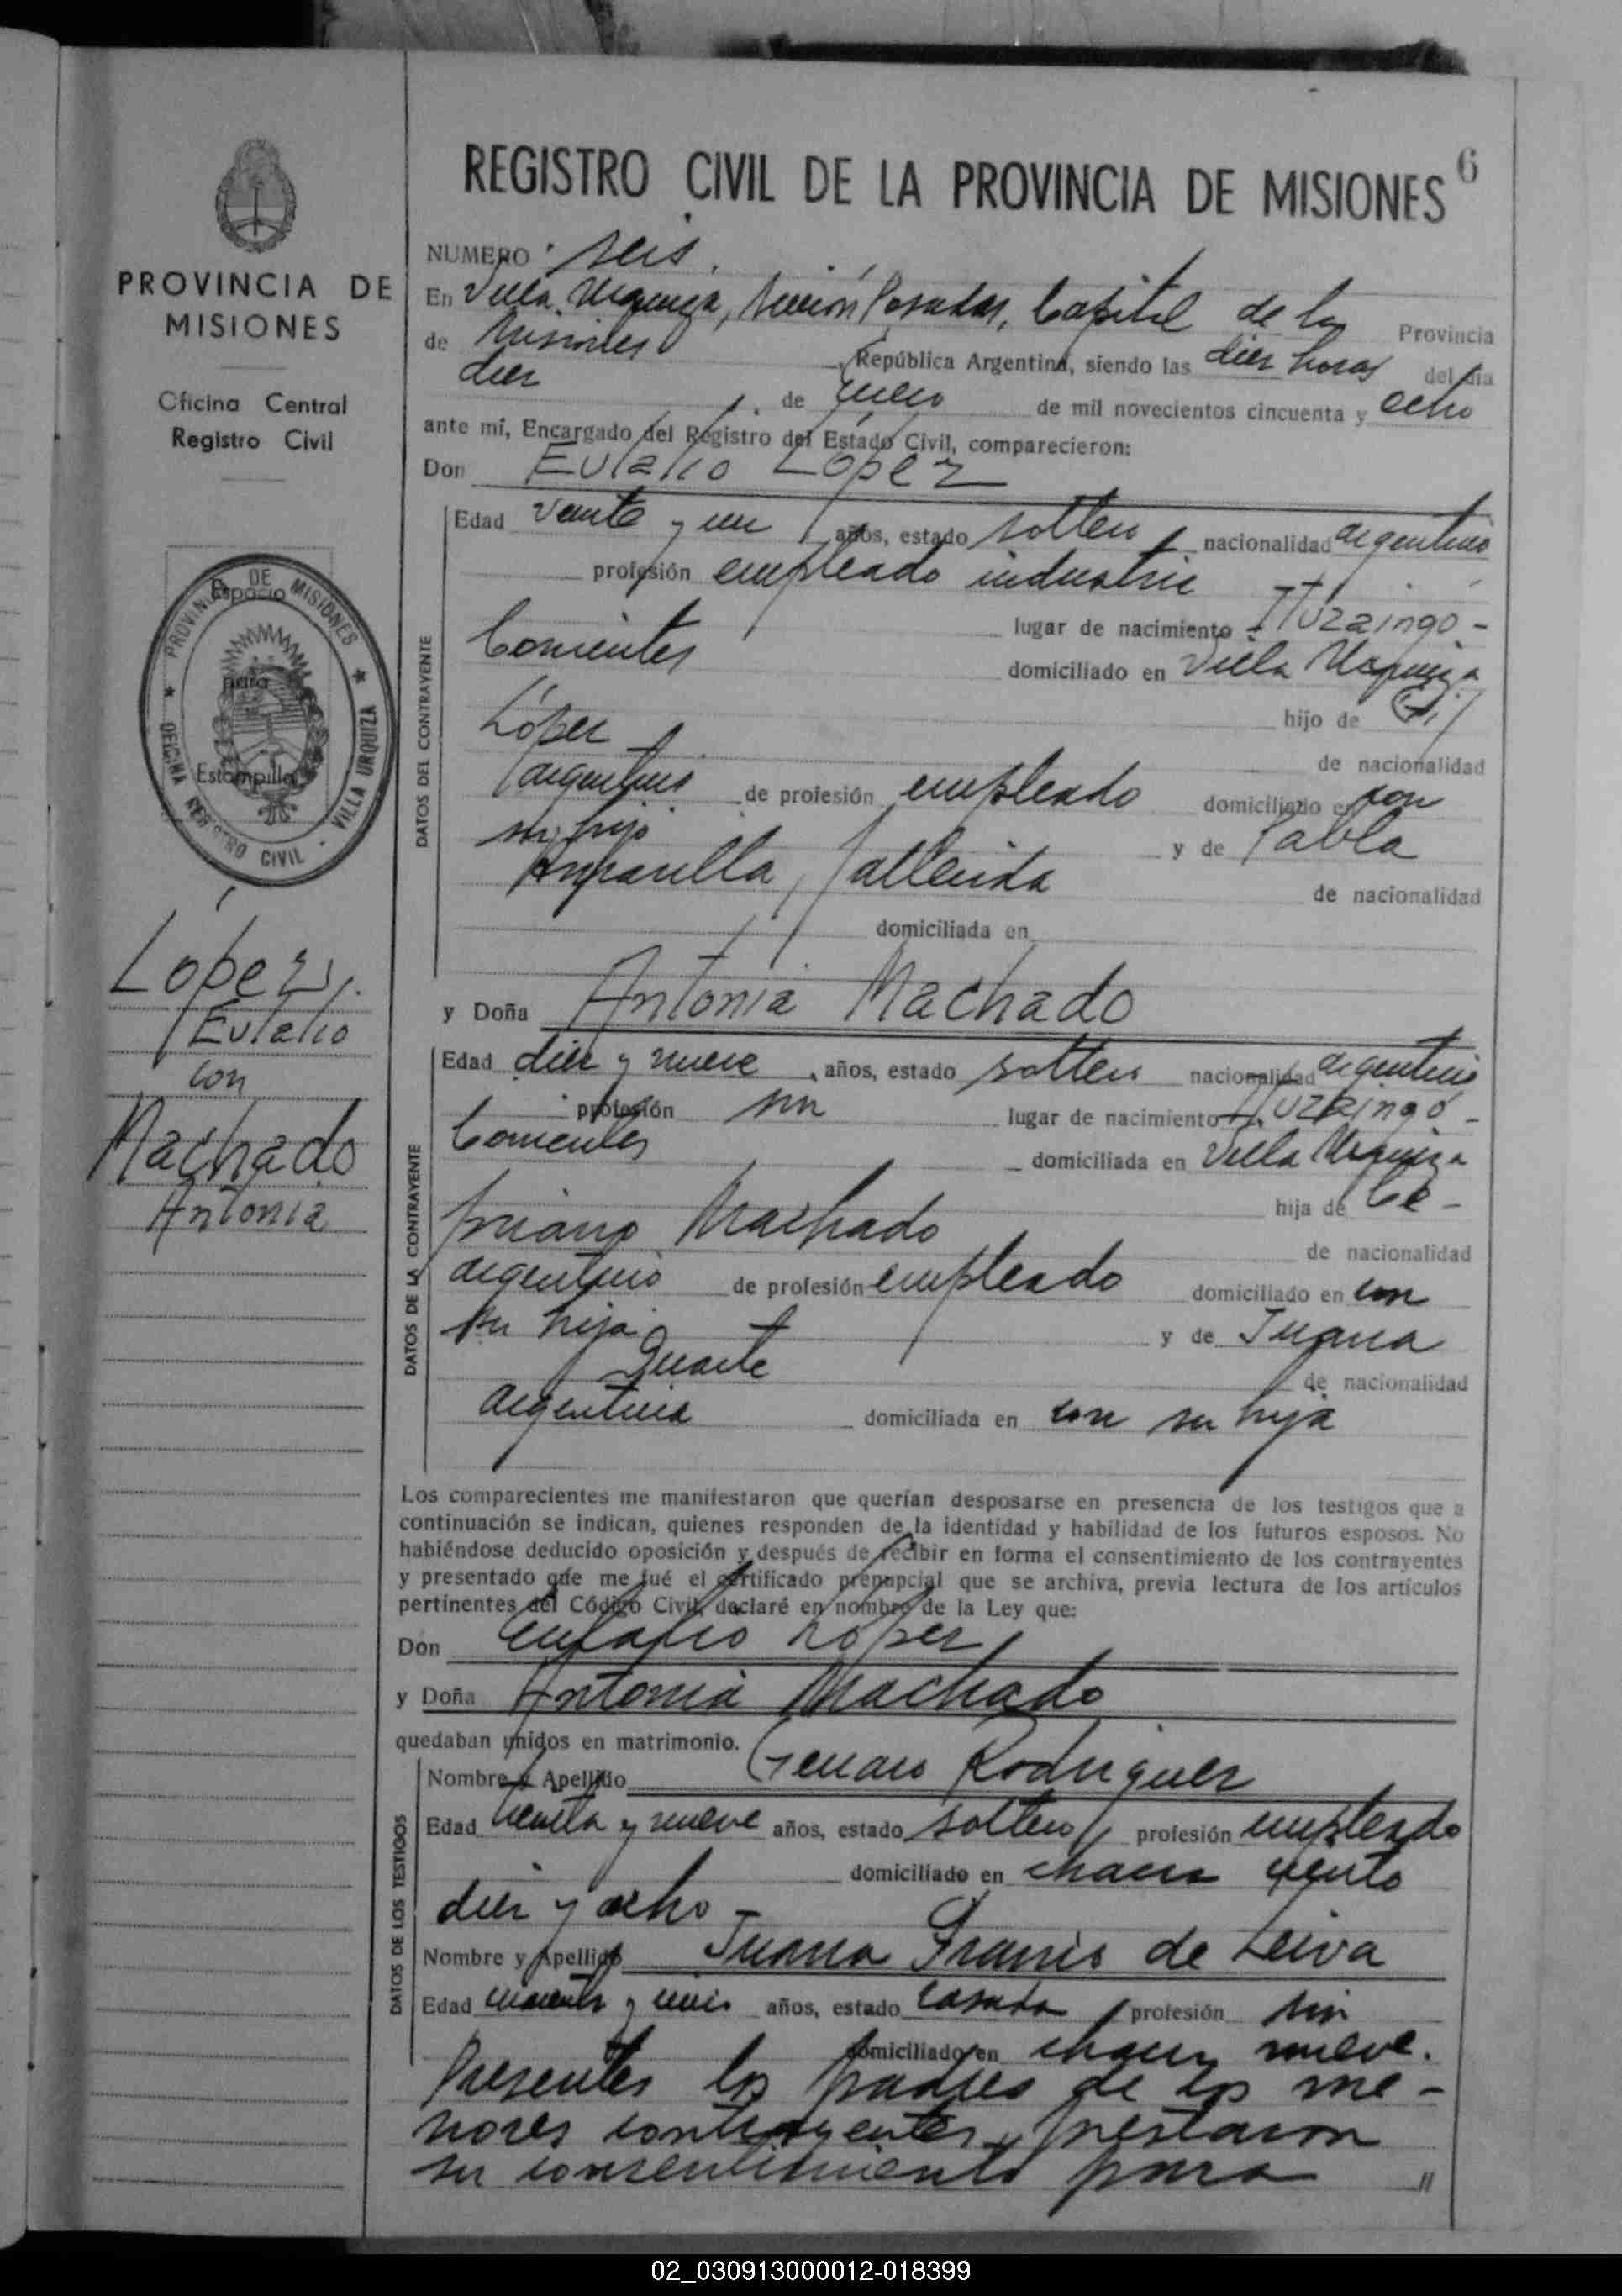 REGISTRO CIVIL DE LA PROVINCIA DE MISIONES 6
PROVINCIA DE
MISIONES
Oficina Central
Registro Civil
PROVINCIA DE MISIONES
OFICINA REGISTRO CIVIL - VILLA URQUIZA
Espacio
para
Estampilla
Lopez,
Eulalio
con
Machado
Antonia
NUMERO seis.
En Villa Urquiza, Sección Posadas, Capital de la Provincia
de Misiones, República Argentina, siendo las diez horas del día
diez, de de mil novecientos cincuenta y ocho
ante mí, Encargado del Registro del Estado Civil, comparecieron:
Don Eulalio Lopez
DATOS DEL CONTRAYENTE
Edad veinte y un años, estado soltero, nacionalidad argentino
profesión empleado industria
lugar de nacimiento Ituzaingó -
Corrientes domiciliado en Villa Urquiza
hijo de Gil
López de nacionalidad
argentino de profesión empleado domiciliado en con
su hijo y de Pabla
fallecida de nacionalidad
domiciliada en
y Doña Antonia Machado
DATOS DE LA CONTRAYENTE
Edad diez y nueve, años, estado soltera nacionalidad argentina
profesión sin lugar de nacimiento Ituzaingó -
Corrientes domiciliada en Villa Urquiza
hija de Ce-
priano Machado de nacionalidad
argentino de profesión empleado domiciliado en con
su hija y de Juana
Duarte de nacionalidad
argentina domiciliada en con su hija
Los comparecientes me manifestaron que querían desposarse en presencia de los testigos que a
continuación se indican, quienes responden de la identidad y habilidad de los futuros esposos. No
habiéndose deducido oposición y después de recibir en forma el consentimiento de los contrayentes
y presentado que me fué el certificado prenupcial que se archiva, previa lectura de los artículos
pertinentes del Código Civil, declaré en nombre de la Ley que:
Don Eulalio López
y Doña Antonia Machado
quedaban unidos en matrimonio.
DATOS DE LOS TESTIGOS
Nombre y Apellido Genaro Rodriguez
Edad treinta y nueve años, estado soltero, profesión empleado
domiciliado en chacra ciento
diez y ocho -
Nombre y Apellido Juana de Leiva
Edad cuarenta y años, estado casada, profesión sin
domiciliado en chacra nueve.
Presentes los padres de los me-
nores contrayentes, prestaron
su consentimiento para //
02_030913000012-018399